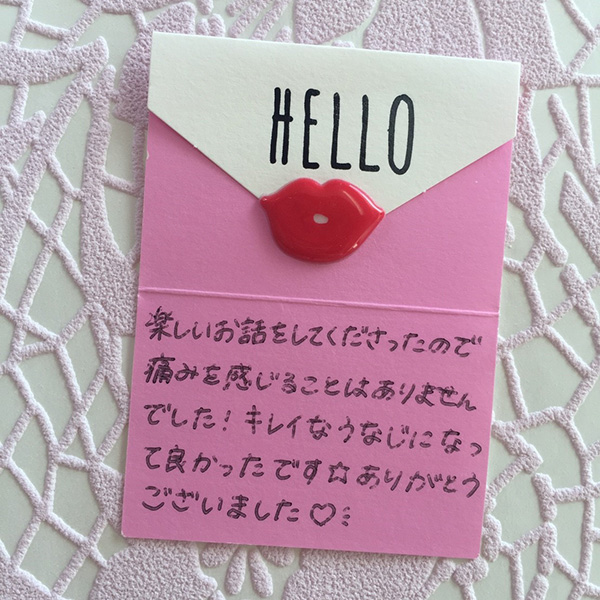 HELLO
楽しいお話をしてくださったので
痛みを感じることはありません
でした！キレイなうなじになっ
て良かったです☆ありがとう
ございました♡